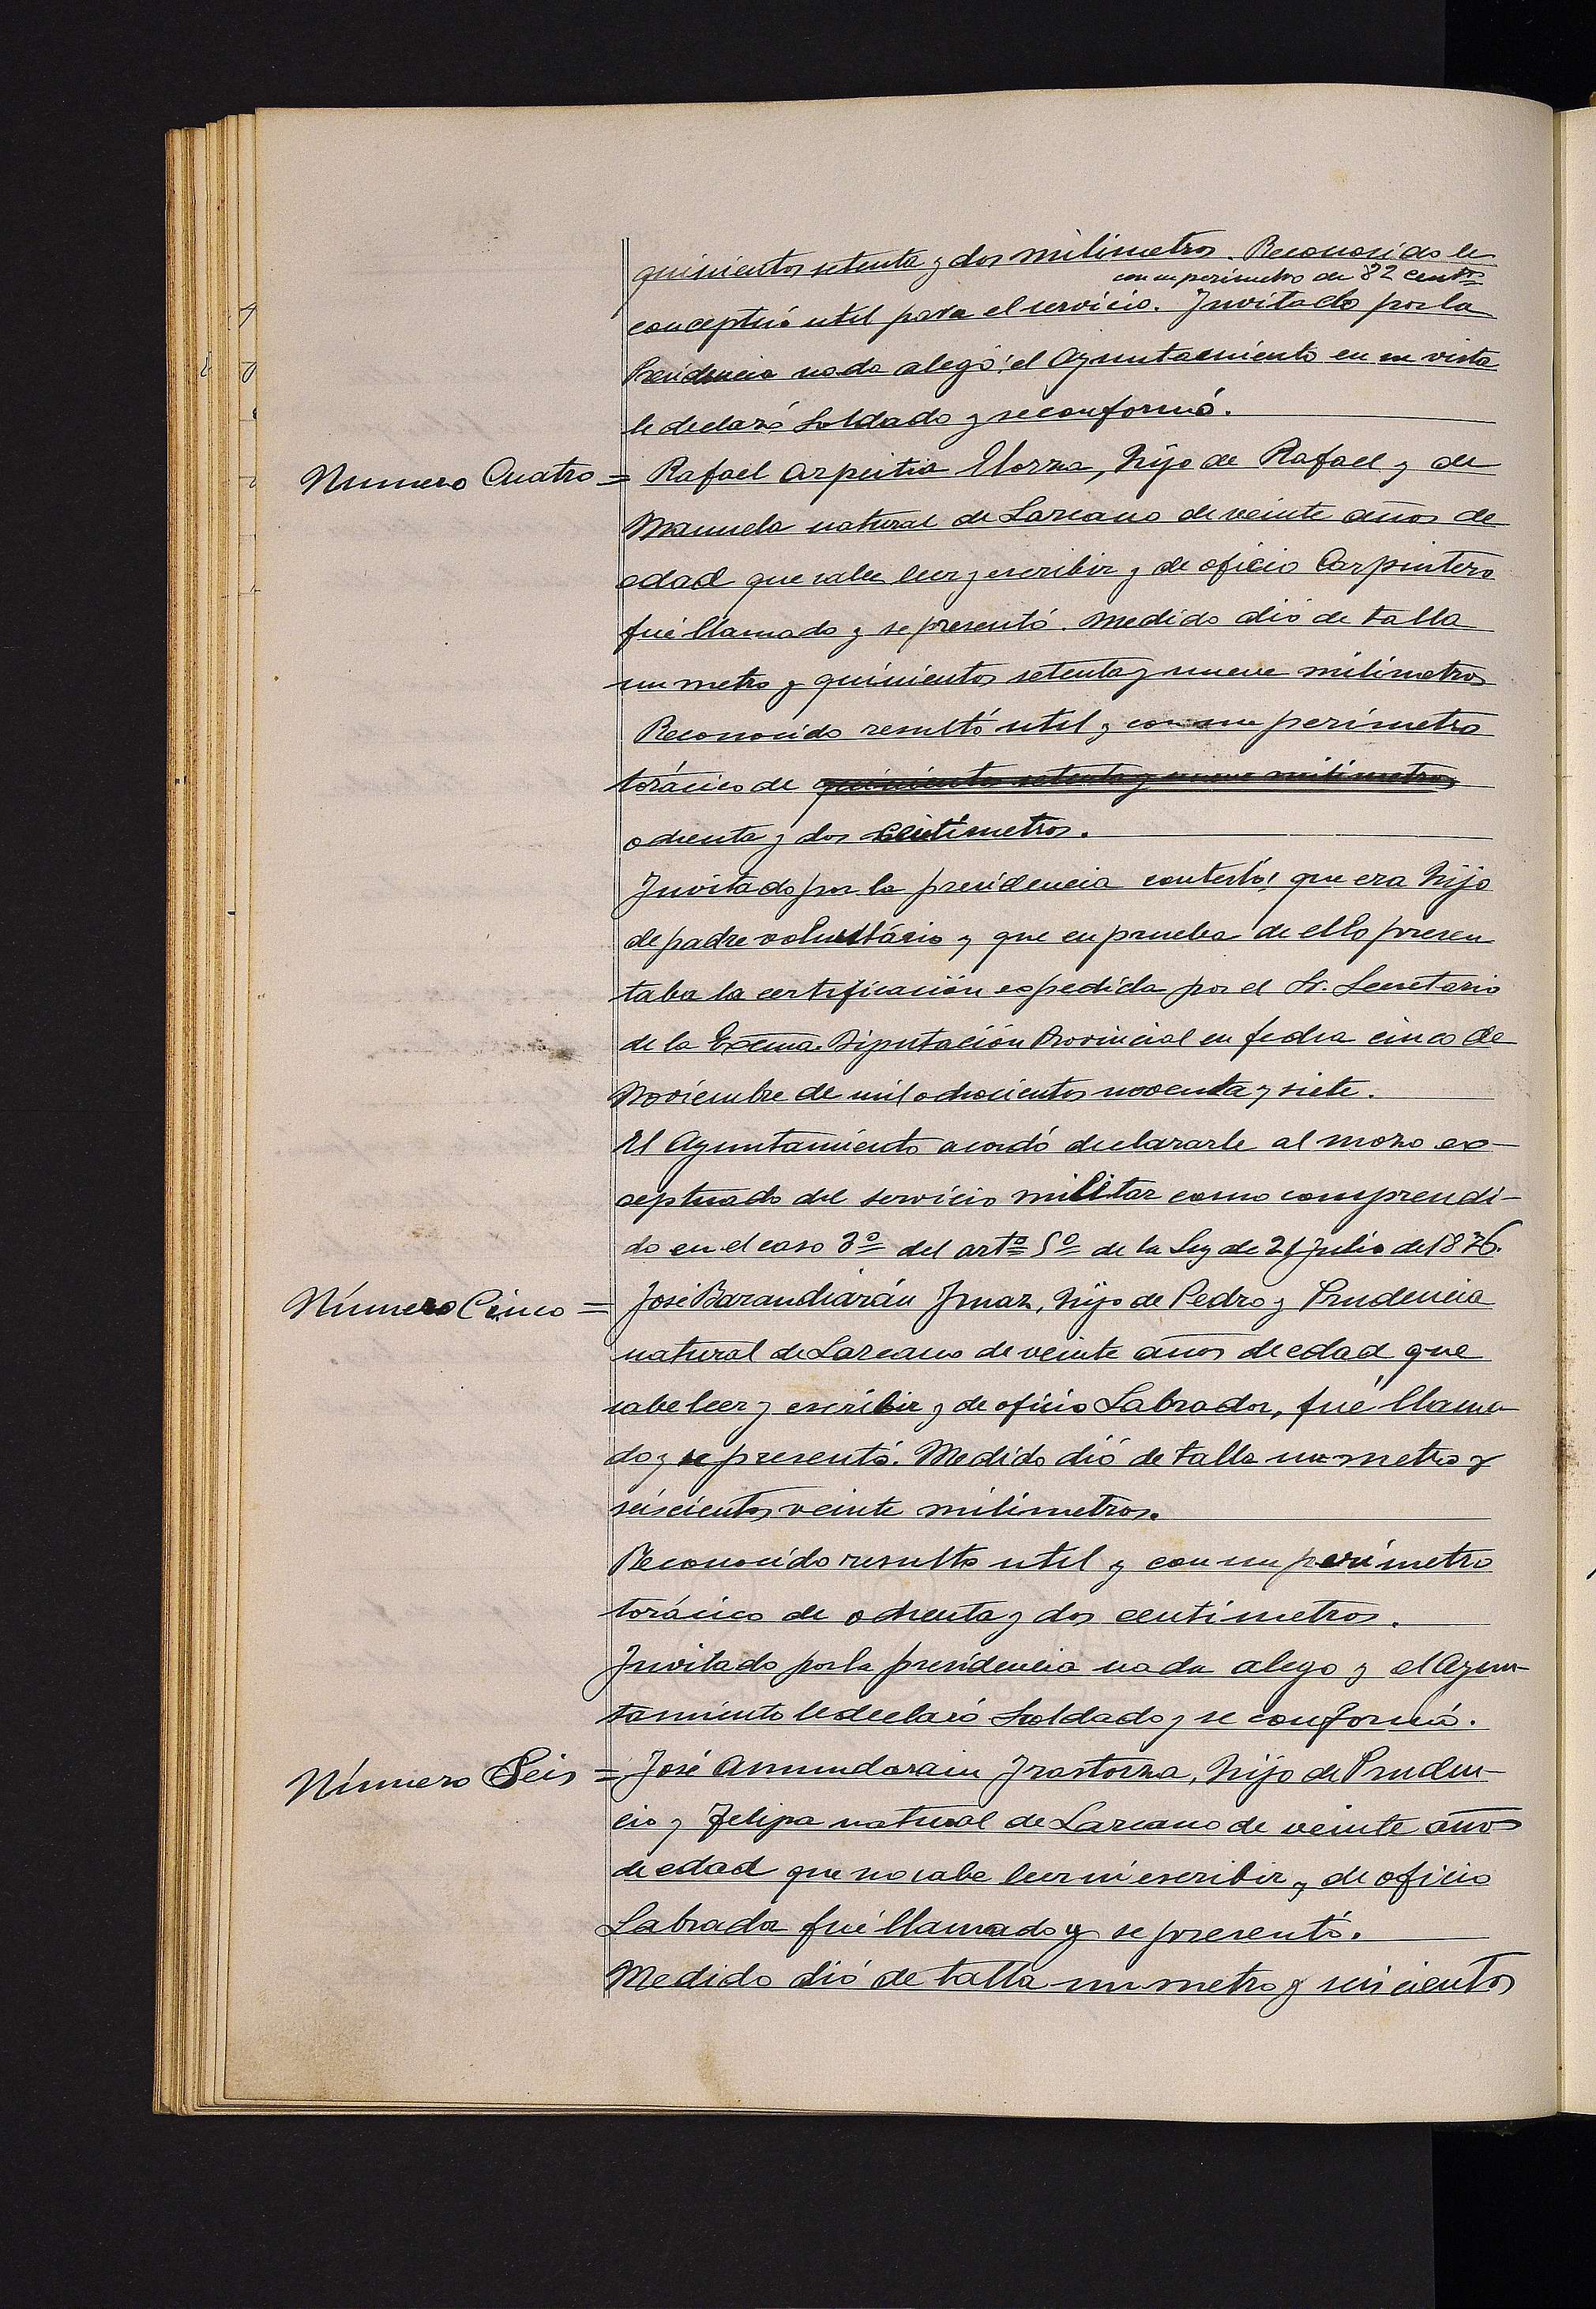 quinientos setenta y dos milimetros. Reconocido le
con un perimetro de 82 centros
conceptuó util para el servicio. Invitado por la
Presidencia nada alegó; el Ayuntamiento en su vista
le declaró Soldado y se conformó.
Numero Cuatro = Rafael Azpeitia Elorza, hijo de Rafael y de
Manuela natural de Lazcano de veinte años de
edad que sabe leer y escribir y de oficio Carpintero
fué llamado y se presentó. Medido dió de talla
un metro y quinientos setenta y nueve milimetros
Reconocido resultó util y con un perímetro
torácico de quinientos setenta y nueve milimetros
ochenta y dos centímetros.
Invitado por la presidencia contestó: que era hijo
de padre voluntário y que en prueba de ello presen
taba la certificación espedida por el Sr. Secretario
de la Excma. Diputación Provincial en fecha cinco de
Noviembre de mil ochocientos noventa y siete.
El Ayuntamiento acordó declararle al mozo ex-
ceptuado del servicio militar como comprendi-
do en el caso 3º del artº 5º de la Ley de 21 Julio de 1876.
Número Cinco = José Barandiarán Imaz, hijo de Pedro y Prudencia
natural de Lazcano de veinte años de edad que
sabe leer y escribir y de oficio Labrador, fué llama-
do y se presentó. Medido dió de talla un metro y
seiscientos veinte milimetros.
Reconocido resulto util y con un perímetro
torácico de ochenta y dos centímetros.
Invitado por la presidencia nada alego y el Ayun-
tamiento le declaró Soldado y se conformó.
Número Seis = José Amundarain Irastorza, hijo de Pruden-
cio y Felipa natural de Lazcano de veinte años
de edad que no sabe leer ni escribir y de oficio
Labrador fué llamado y se presentó.
Medido dió de talla un metro y seiscientos